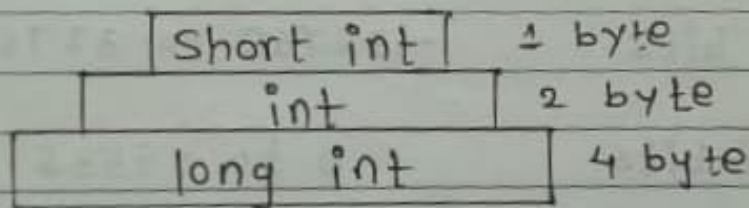 Short int 1 byte
int 2 byte
long int 4 byte